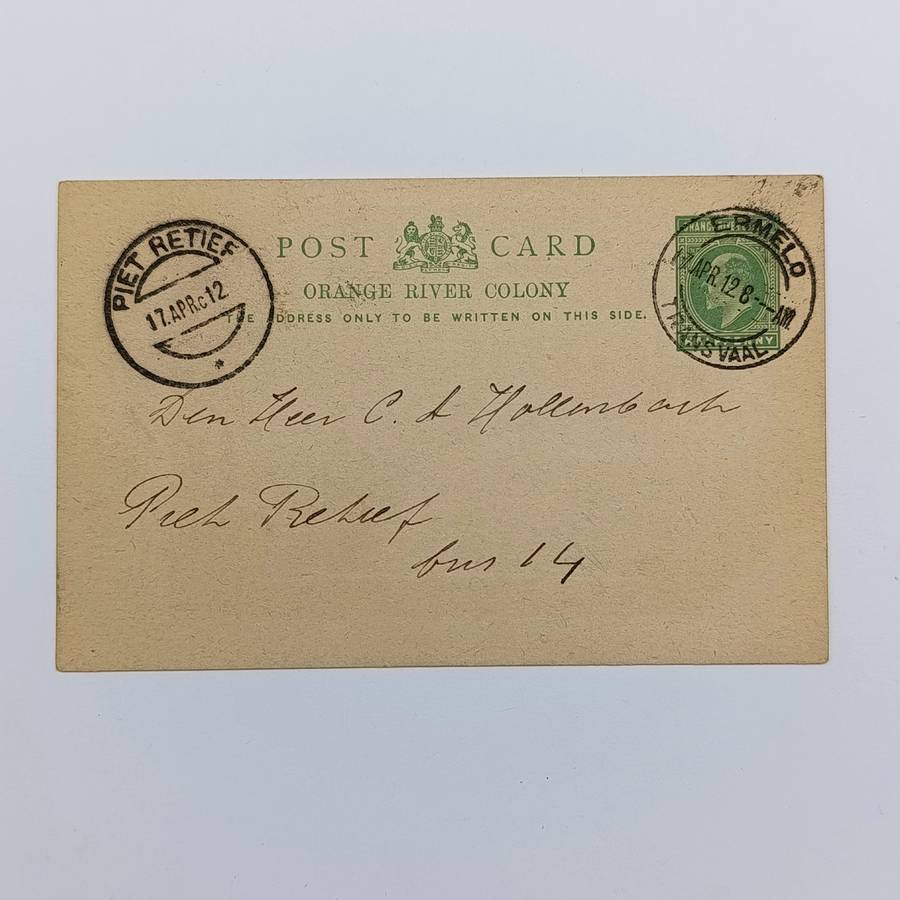 POST CARD
ORANGE RIVER COLONY
THE ADDRESS ONLY TO BE WRITTEN ON THIS SIDE.
PIET RETIEF
17.APR.C12
ERMELO
17 APR.12 8-- AM
TRANSVAAL
Den Heer C. A Hollenbach
Piet Retief
bus 14